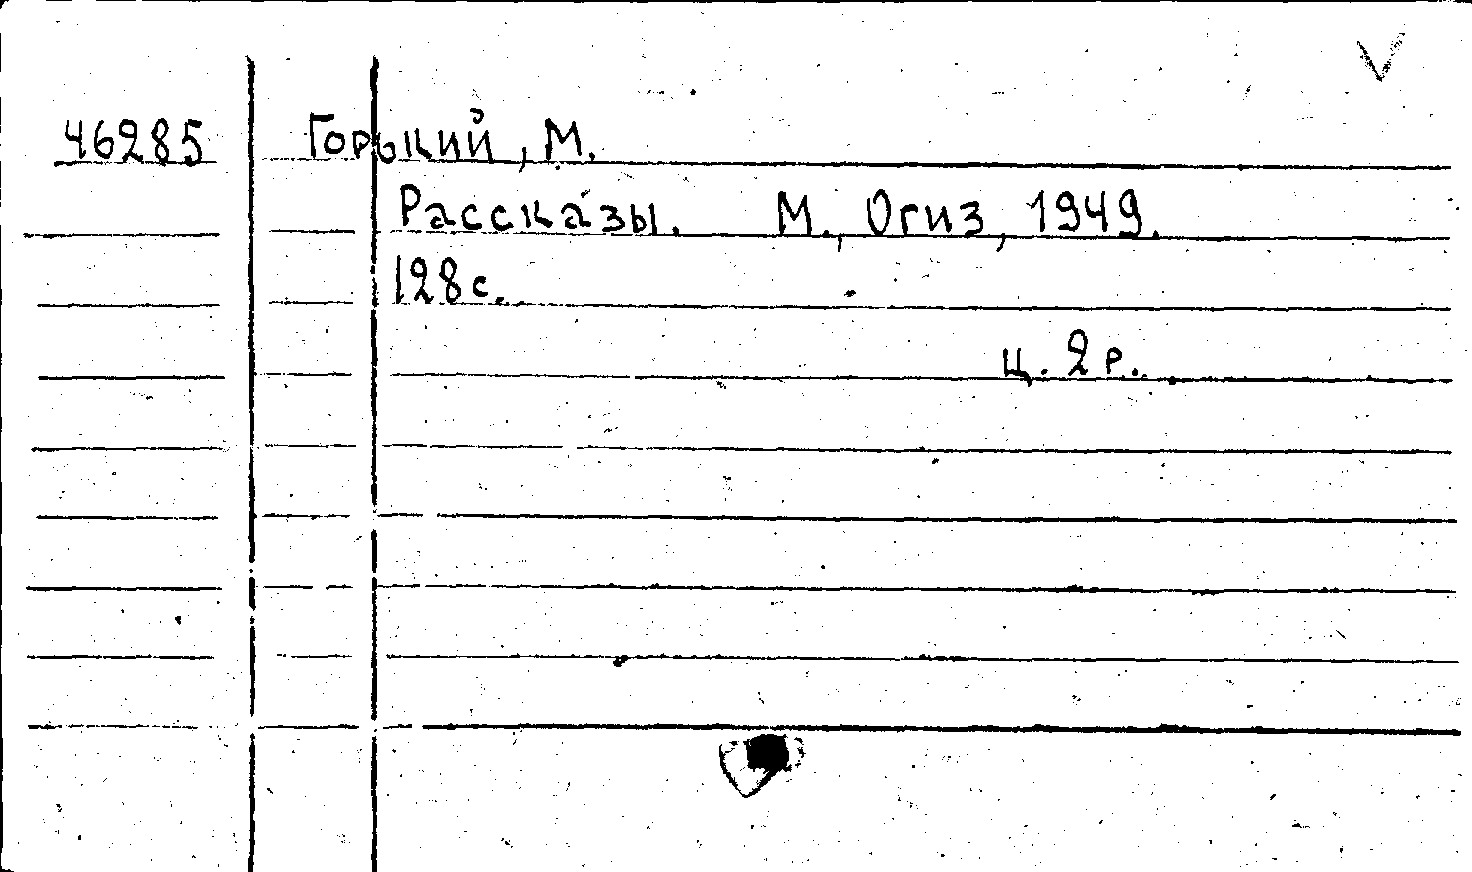 46285 Горький, М.
Рассказы. М., Огиз, 1949.
128с.
ц. 2 р.